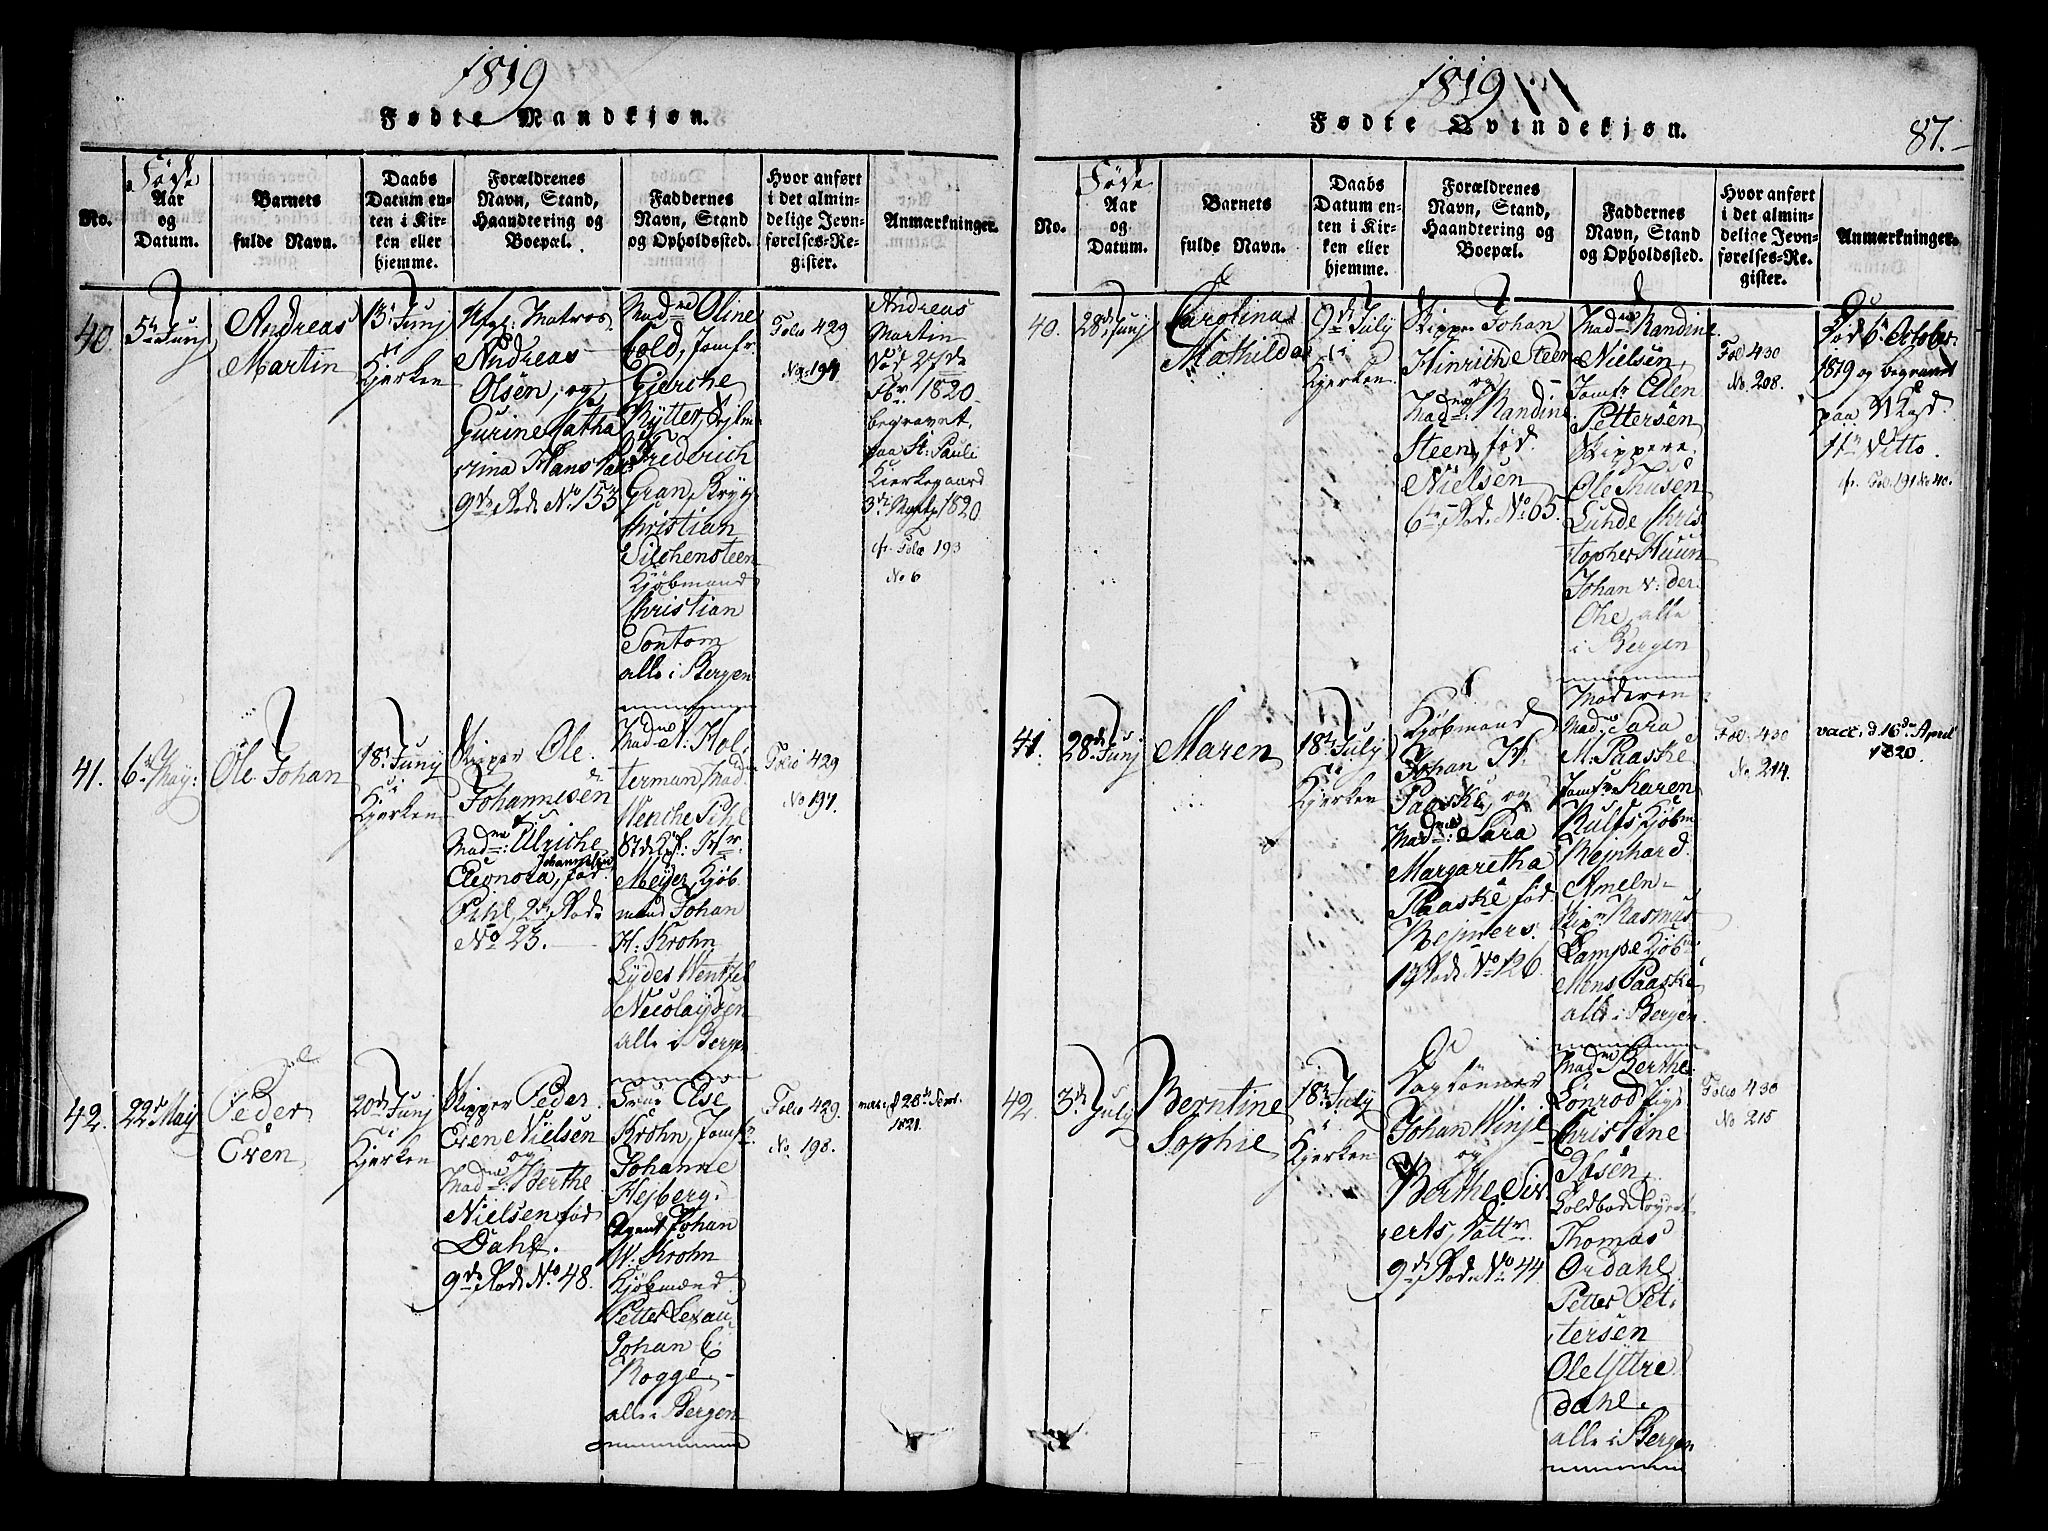 1819
Fødte Mandkjøn.
No.
Føde
Aar
og
Datum.
Barnets
fulde Navn.
Daabs
Datum en-
ten i Kir-
ken eller
hjemme.
Forældrenes
Navn, Stand,
Haandtering og
Boepæl.
Faddernes
Navn, Stand
og Opholdssted.
Hvor anført
i det almin-
delige Jevn-
førelses-Re-
gister.
Anmærkninger.
40.
5te Junj
Andreas
Martin
13de Junj
i
Kjerken
Matros
Andreas
Olsen, og
Gurine Catha
rina Hans
9de Rode No 153
Madme Oline
Cold, Jomfr
Gierche
Rytter,
Frederich
Gran,
Christian
Kjøbmand
Christian
Sontom
alle i Bergen
Folio 429
No 194
Andreas
Martin
Død 27de
Fbr. 1820
begravet
paa St. Pauli
Kierkegaard
3de Martz 1820
cfr. Folio 193
No 6
41.
6te May
Ole Johan
18de Juny
i
Kjerken
Skipper Ole
Johannesen
&
Madme Ulriche
Eleonora, Johannesen fød
Pihl, 2de Rode
No 23.
Madme N. Hol
terman, Mad
Wenche Pihl
Hr.
Meyer, Kjøb
mænd Johan
H: Krohn
Lydes Wentzel
Nicolaysen
alle i Bergen
Folio 429
No 197.
42.
22de May
Peder
Even
20de Junj
i
Kjerken
Skipper Peder
Even Nielsen
og
Madme Berthe
Nielsen fød
Dahl.
9de Rode No. 48.
Frue Else
Krohn, Jomfr
Johanne
Hejberg.
Agent Johan
W. Krohn
Kjøbmænd
Petter Lexau
Johan C.
Rogge,
alle i Bergen
Folio 429.
No. 198.
1821.
1819
Fødte Qvindekjøn.
87.
No.
Føde
Aar
og
Datum.
Barnets
fulde Navn.
Daabs
Datum en-
ten i Kir-
ken eller
hjemme.
Forældrenes
Navn, Stand,
Haandtering og
Boepæl.
Faddernes
Navn, Stand
og Opholdssted.
Hvor anført
i det almin-
delige Jevn-
førelses-Re-
gister.
Anmærkninger.
40.
28de Junj
Carolina
Mathilda
9de July
i
Kjerken
Skipper Johan
Hinrich Steen
og
Madme Randine
Steen, fød
Nielsen
6te Rode No 65.
Madme Randine
Nielsen,
Jomfr Elen
Pettersen
Skippere
Ole Thusen
Lunde Chris
topher Huun
Johan v: der
Ohe, alle
i Bergen
Fol 430
No. 208.
Død 6te October
1819 og begravet
paa N Kgd.
11te Ditto.
cfr. Fol. 191 No 40.
41.
28de Junj
Maren
18de July
i
Kjerken
Kjøbmand
Johan H.
Paaske, og
Madme: Sara
Margaretha
Paaske, fød
Rejners.
13 Rode No 126.
Moderen
Mad. Sara
M. Paaske
Jomfr Karen
Rulfs Kjøbm
Rejnhard
Ameln
Skipr Rasmus
Lampe Kjøbm
Mens Paaske
alle i Bergen
Fol. 430
No. 214.
vacc. d. 16de April
1820.
42.
3de July
Berntine
Sophie
18de July
i
Kjerken
Johan Winje
og
Berthe Siv
erts, Datter
9de Rode No 44
Madme Berthe
Lønrod Pige
Christine
Ibsen,
Thomas
Ordahl
Petter Pet
tersen
Ole Yttre
dahl.
alle i Bergen
Folio 430
No 215